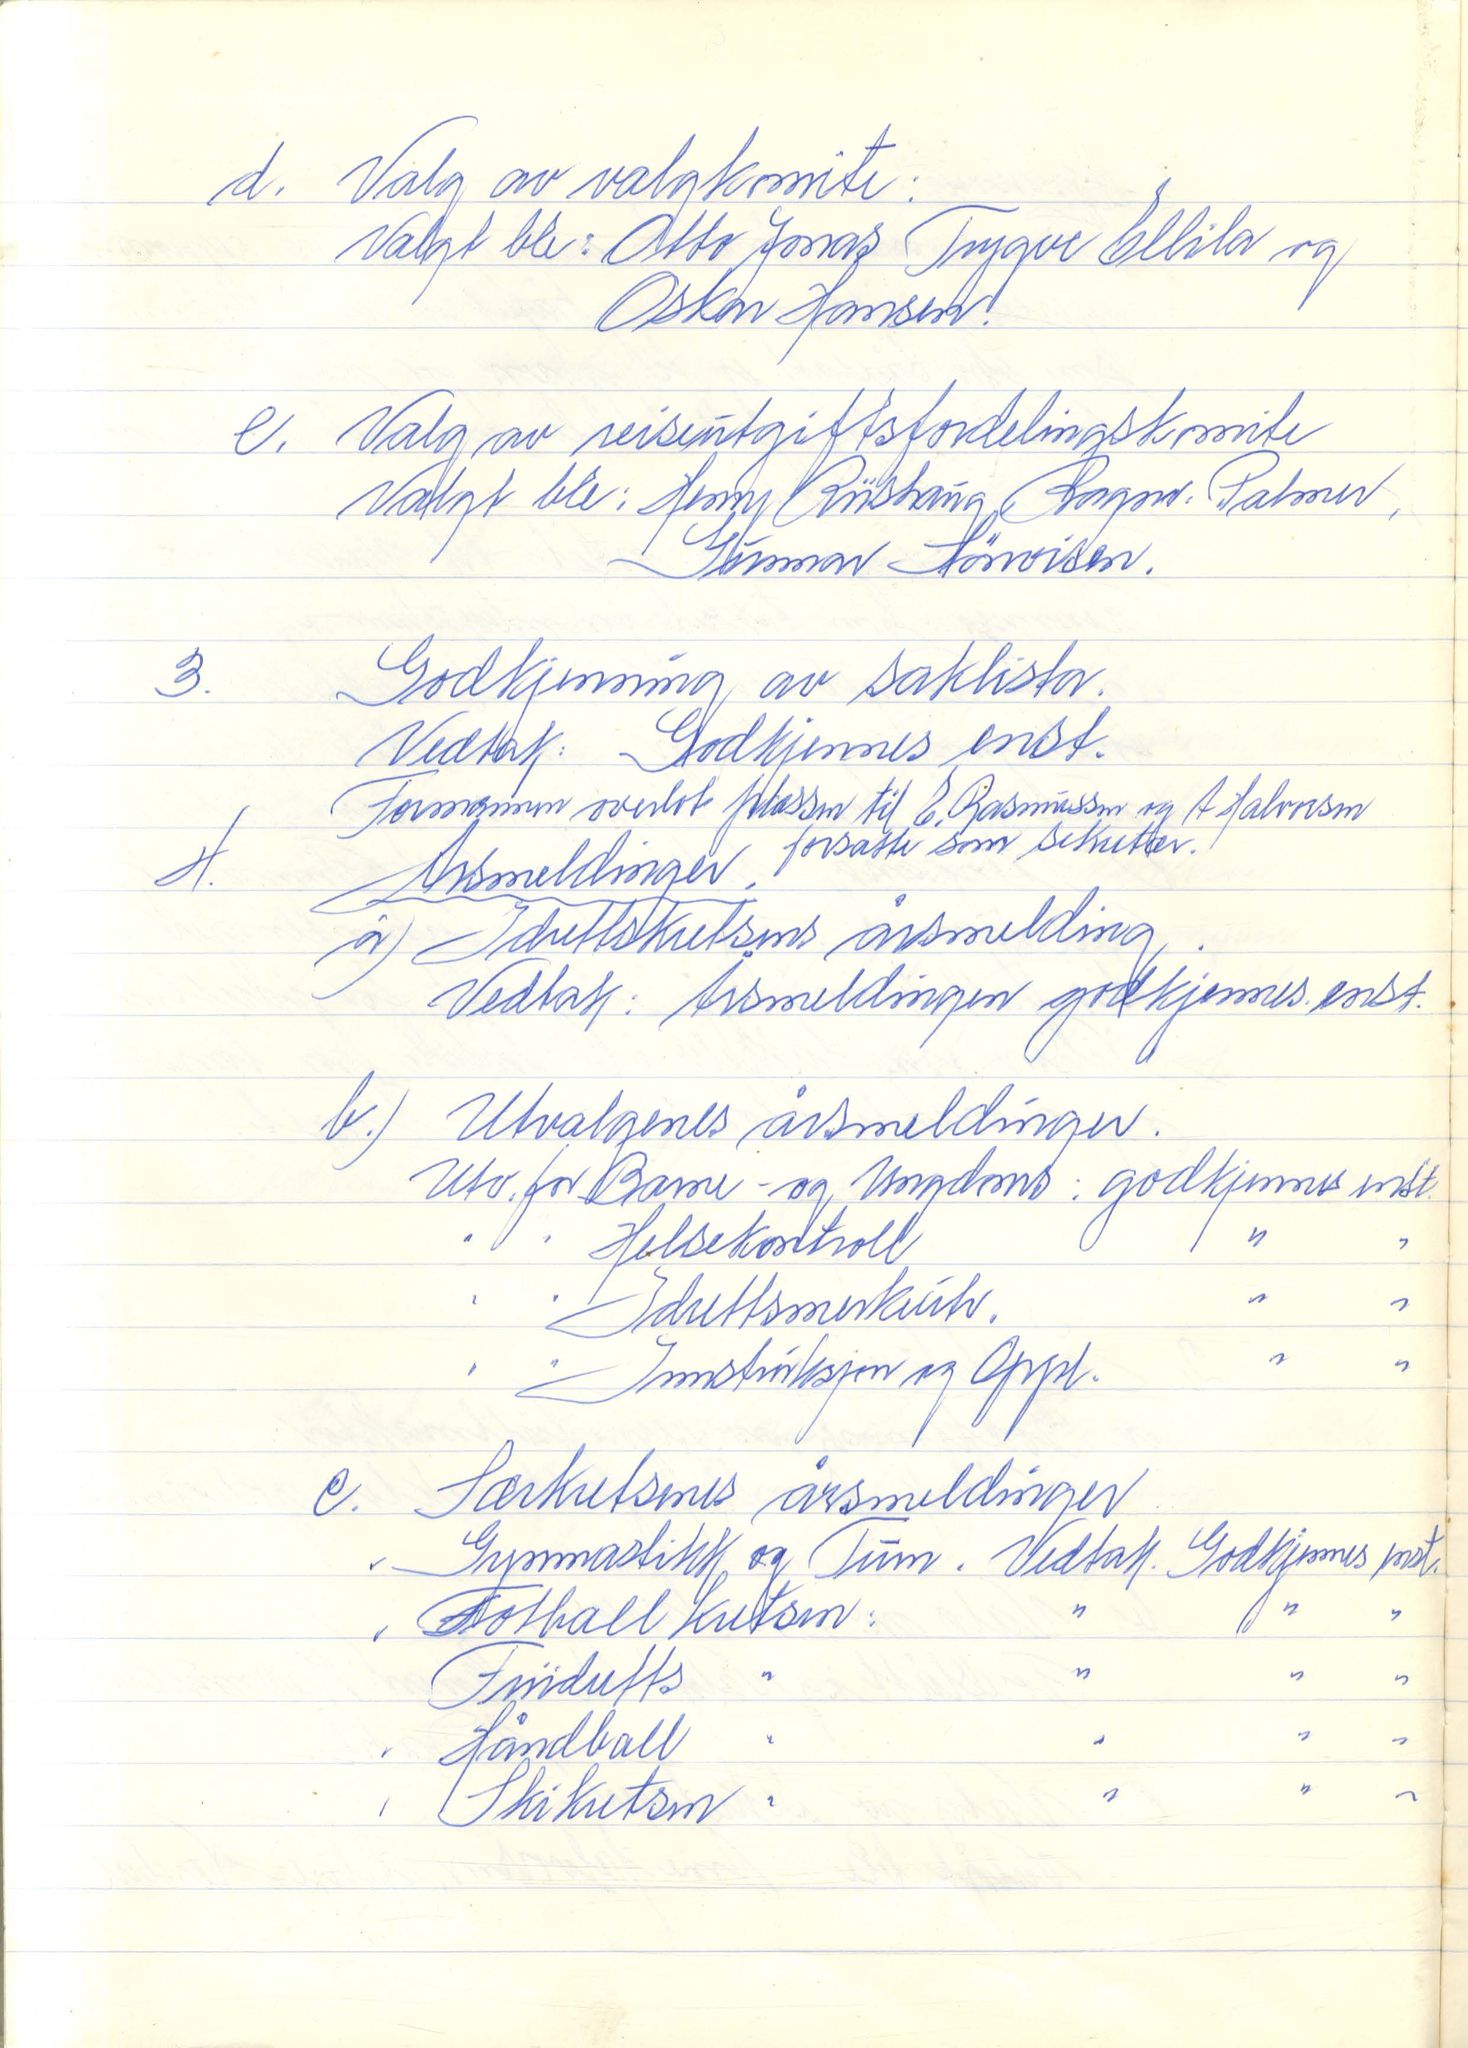 d. Valg av valgkomite:
Valgt ble: Otto Jonas Trygve Ellila og
Oskar Hansen.
e. Valg av reiseutgiftsfordelingskomite
Valgt ble: Henny Riishaug, Ragnv. Palmer,
Gunnar
3. Godkjenning av saklista.
Vedtak: Godkjennes enst.
Formannen overlot plassen til E. Rasmussen og A Halvorsen
forsatte som sekretær.
4. Årsmeldinger.
a) Idrettskretsens årsmelding.
Vedtak: Årsmeldingen godkjennes enst.
b.) Utvalgenes årsmeldinger.
Utv. for Barne- og Ungdoms: godkjennes enst.
" " Helsekontroll " "
" " Idrettsmerkeutv. " "
" " Innstruksjon og Oppl. " "
c. Særkretsenes årsmeldinger
" Gymnastikk og Turn. Vedtak. Godkjennes enst.
" Fotball kretsen: " " "
Friidretts " " " "
" Håndball " " " "
" Skikretsen " " " "